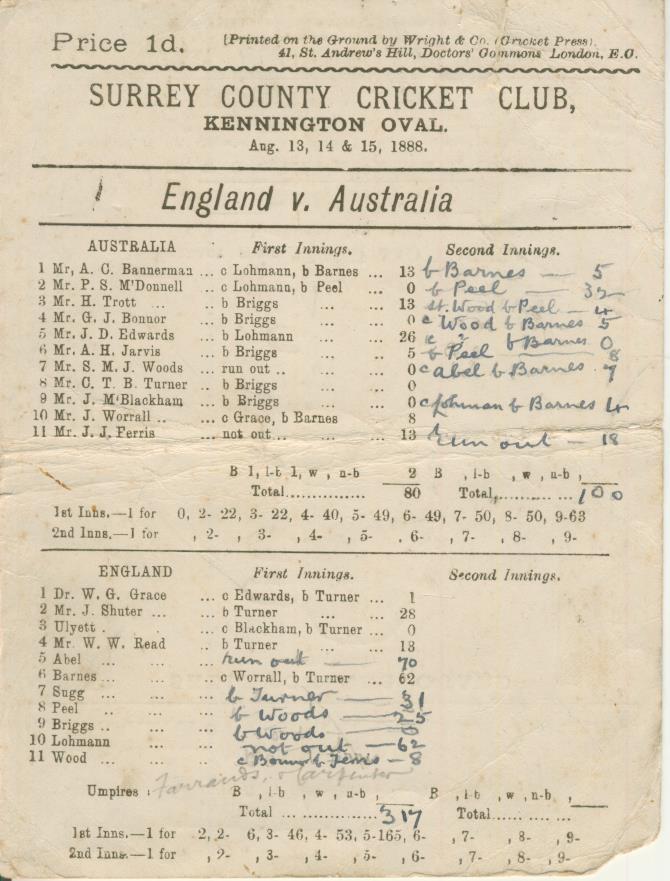 Price 1d. [Printed on the Ground by Wright & Co. (Cricket Press),
41, St. Andrew's Hill, Doctors' Commons London, E.C.
SURREY COUNTY CRICKET CLUB,
KENNINGTON OVAL.
Aug. 13, 14 & 15, 1888.
England v. Australia
AUSTRALIA First Innings. Second Innings.
1 Mr, A. C. Bannerman ... c Lohmann, b Barnes ... 13 b Barnes — 5
2 Mr. P. S. M'Donnell ... c Lohmann, b Peel ... 0 b Peel — 32
3 Mr. H. Trott ... ... b Briggs ... ... 13 st. Wood b Peel — 4
4 Mr. G. J. Bonnor ... b Briggs ... ... 0 c Wood b Barnes 5
5 Mr. J. D. Edwards ... b Lohmann ... 26 c " b Barnes 0
6 Mr. A. H. Jarvis ... b Briggs ... ... 5 b Peel — 8
7 Mr. S. M. J. Woods ... run out .. ... 0 c abel b Barnes 7
8 Mr. C. T. B. Turner .. b Briggs ... ... 0
9 Mr. J. M'Blackham ... b Briggs ... ... 0 c Lohman b Barnes 4
10 Mr. J. Worrall .. ... c Grace, b Barnes 8
11 Mr. J. J. Ferris ... not out .. ... ... 13 run out — 18
B 1, l-b 1, w , n-b 2 B , l-b , w , n-b ,
Total............... 80 Total,............ 100
1st Inns.—1 for 0, 2- 22, 3- 22, 4- 40, 5- 49, 6- 49, 7- 50, 8- 50, 9-63
2nd Inns.—1 for , 2- , 3- , 4- , 5- , 6- , 7- , 8- , 9-
ENGLAND First Innings. Second Innings.
1 Dr. W. G. Grace ... c Edwards, b Turner ... 1
2 Mr. J. Shuter ... ... b Turner ... ... 28
3 Ulyett . ... ... c Blackham, b Turner ... 0
4 Mr. W. W. Read ... b Turner ... ... 18
5 Abel ... ... ... run out — 70
6 Barnes ... ... ... c Worrall, b Turner ... 62
7 Sugg ... ... ... b Turner — 31
8 Peel ... ... ... b Woods — 25
9 Briggs .. ... ... b Woods — 0
10 Lohmann ... ... not out — 62
11 Wood ... ... ... c b Ferris — 8
Umpires : Farrands, & Carpenter B , l-b , w , n-b , B , l-b , w , n-b ,
Total ............... 317 Total...... ....
1st Inns.—1 for 2, 2- 6, 3- 46, 4- 53, 5-165, 6- , 7- , 8- , 9-
2nd Inns.—1 for , 2- , 3- , 4- , 5- , 6- , 7- , 8- , 9-